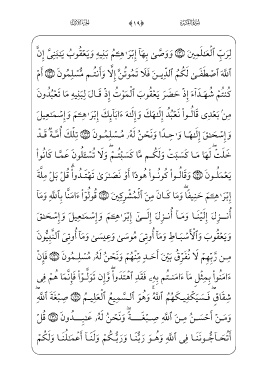 سُورَةُ البَقَرَةِ ﴿١٩﴾ الجُزْءُ الأَوَّلُ
لِرَبِّ ٱلْعَٰلَمِينَ ﴿١٣١﴾ وَوَصَّىٰ بِهَآ إِبْرَٰهِـۧمُ بَنِيهِ وَيَعْقُوبُ يَٰبَنِىَّ إِنَّ
ٱللَّهَ ٱصْطَفَىٰ لَكُمُ ٱلدِّينَ فَلَا تَمُوتُنَّ إِلَّا وَأَنتُم مُّسْلِمُونَ ﴿١٣٢﴾ أَمْ
كُنتُمْ شُهَدَآءَ إِذْ حَضَرَ يَعْقُوبَ ٱلْمَوْتُ إِذْ قَالَ لِبَنِيهِ مَا تَعْبُدُونَ
مِنۢ بَعْدِى قَالُوا۟ نَعْبُدُ إِلَٰهَكَ وَإِلَٰهَ ءَابَآئِكَ إِبْرَٰهِـۧمَ وَإِسْمَٰعِيلَ
وَإِسْحَٰقَ إِلَٰهًا وَٰحِدًا وَنَحْنُ لَهُۥ مُسْلِمُونَ ﴿١٣٣﴾ تِلْكَ أُمَّةٌ قَدْ
خَلَتْ ۖ لَهَا مَا كَسَبَتْ وَلَكُم مَّا كَسَبْتُمْ ۖ وَلَا تُسْـَٔلُونَ عَمَّا كَانُوا۟
يَعْمَلُونَ ﴿١٣٤﴾ وَقَالُوا۟ كُونُوا۟ هُودًا أَوْ نَصَٰرَىٰ تَهْتَدُوا۟ ۗ قُلْ بَلْ مِلَّةَ
إِبْرَٰهِـۧمَ حَنِيفًا ۖ وَمَا كَانَ مِنَ ٱلْمُشْرِكِينَ ﴿١٣٥﴾ قُولُوٓا۟ ءَامَنَّا بِٱللَّهِ وَمَآ
أُنزِلَ إِلَيْنَا وَمَآ أُنزِلَ إِلَىٰٓ إِبْرَٰهِـۧمَ وَإِسْمَٰعِيلَ وَإِسْحَٰقَ
وَيَعْقُوبَ وَٱلْأَسْبَاطِ وَمَآ أُوتِىَ مُوسَىٰ وَعِيسَىٰ وَمَآ أُوتِىَ ٱلنَّبِيُّونَ
مِن رَّبِّهِمْ لَا نُفَرِّقُ بَيْنَ أَحَدٍ مِّنْهُمْ وَنَحْنُ لَهُۥ مُسْلِمُونَ ﴿١٣٦﴾ فَإِنْ
ءَامَنُوا۟ بِمِثْلِ مَآ ءَامَنتُم بِهِۦ فَقَدِ ٱهْتَدَوا۟ ۖ وَّإِن تَوَلَّوْا۟ فَإِنَّمَا هُمْ فِى
شِقَاقٍ ۖ فَسَيَكْفِيكَهُمُ ٱللَّهُ ۚ وَهُوَ ٱلسَّمِيعُ ٱلْعَلِيمُ ﴿١٣٧﴾ صِبْغَةَ ٱللَّهِ ۖ
وَمَنْ أَحْسَنُ مِنَ ٱللَّهِ صِبْغَةً ۖ وَنَحْنُ لَهُۥ عَٰبِدُونَ ﴿١٣٨﴾ قُلْ
أَتُحَآجُّونَنَا فِى ٱللَّهِ وَهُوَ رَبُّنَا وَرَبُّكُمْ وَلَنَآ أَعْمَٰلُنَا وَلَكُمْ